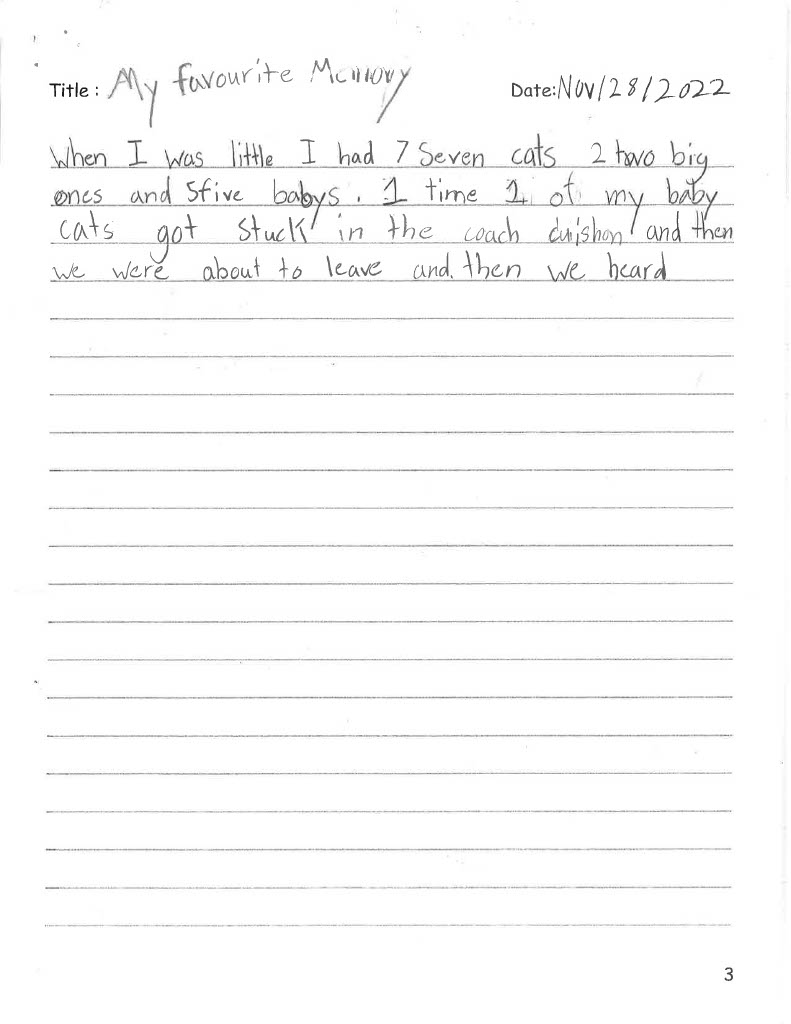 Title : My favourite Memory Date: Nov/28/2022
When I was little I had 7 Seven cats 2 two big
ones and 5five babys. 1 time 1 of my baby
cats got stuck in the coach cuishon and then
we were about to leave and. then we heard
3